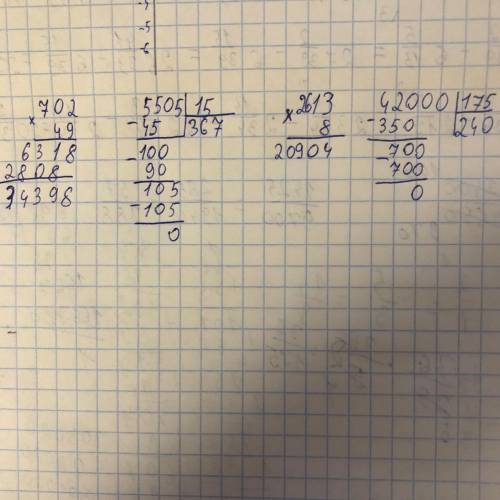 -5
-6
× 702
49
6318
2808
34398
5505 | 15
- 45 | 367
- 100
90
105
- 105
0
× 2613
8
20904
42000 | 175
- 350 | 240
- 700
700
0